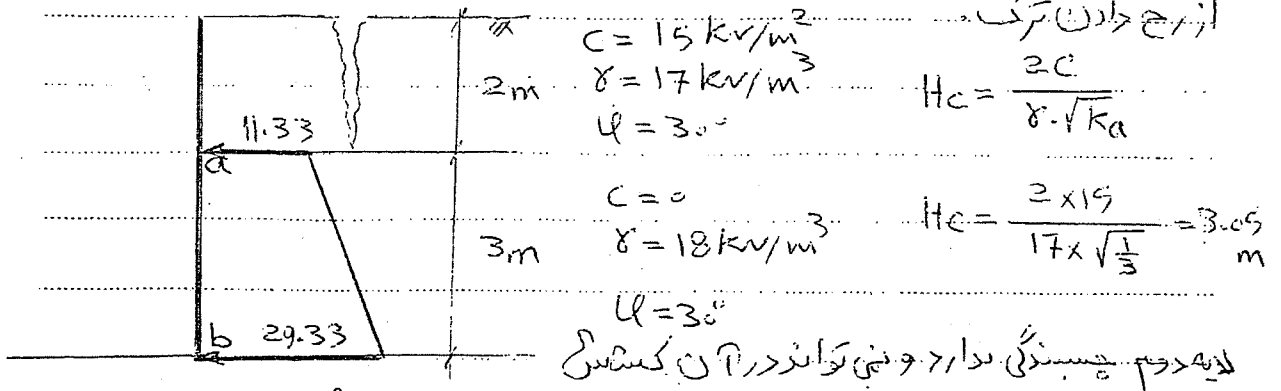 از رخ دادن ترک.
C = 15 kN/m²
2m γ = 17 kN/m³
φ = 30°
Hc = 2C / γ.√Ka
11.33
a
C = 0
3m γ = 18 kN/m³
φ = 30°
Hc = 2×15 / 17×√(1/3) = 3.05 m
b 29.33
لایه دوم چسبندگی ندارد و نمی تواند در آن کشش